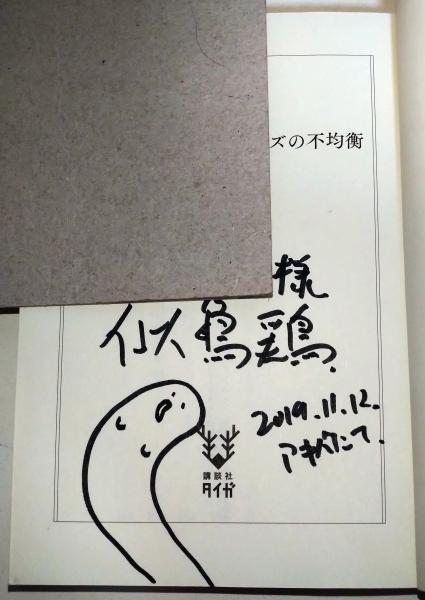 ズの不均衡
様
似鳥鶏
2019.11.12.
アキバにて.
講談社
タイガ